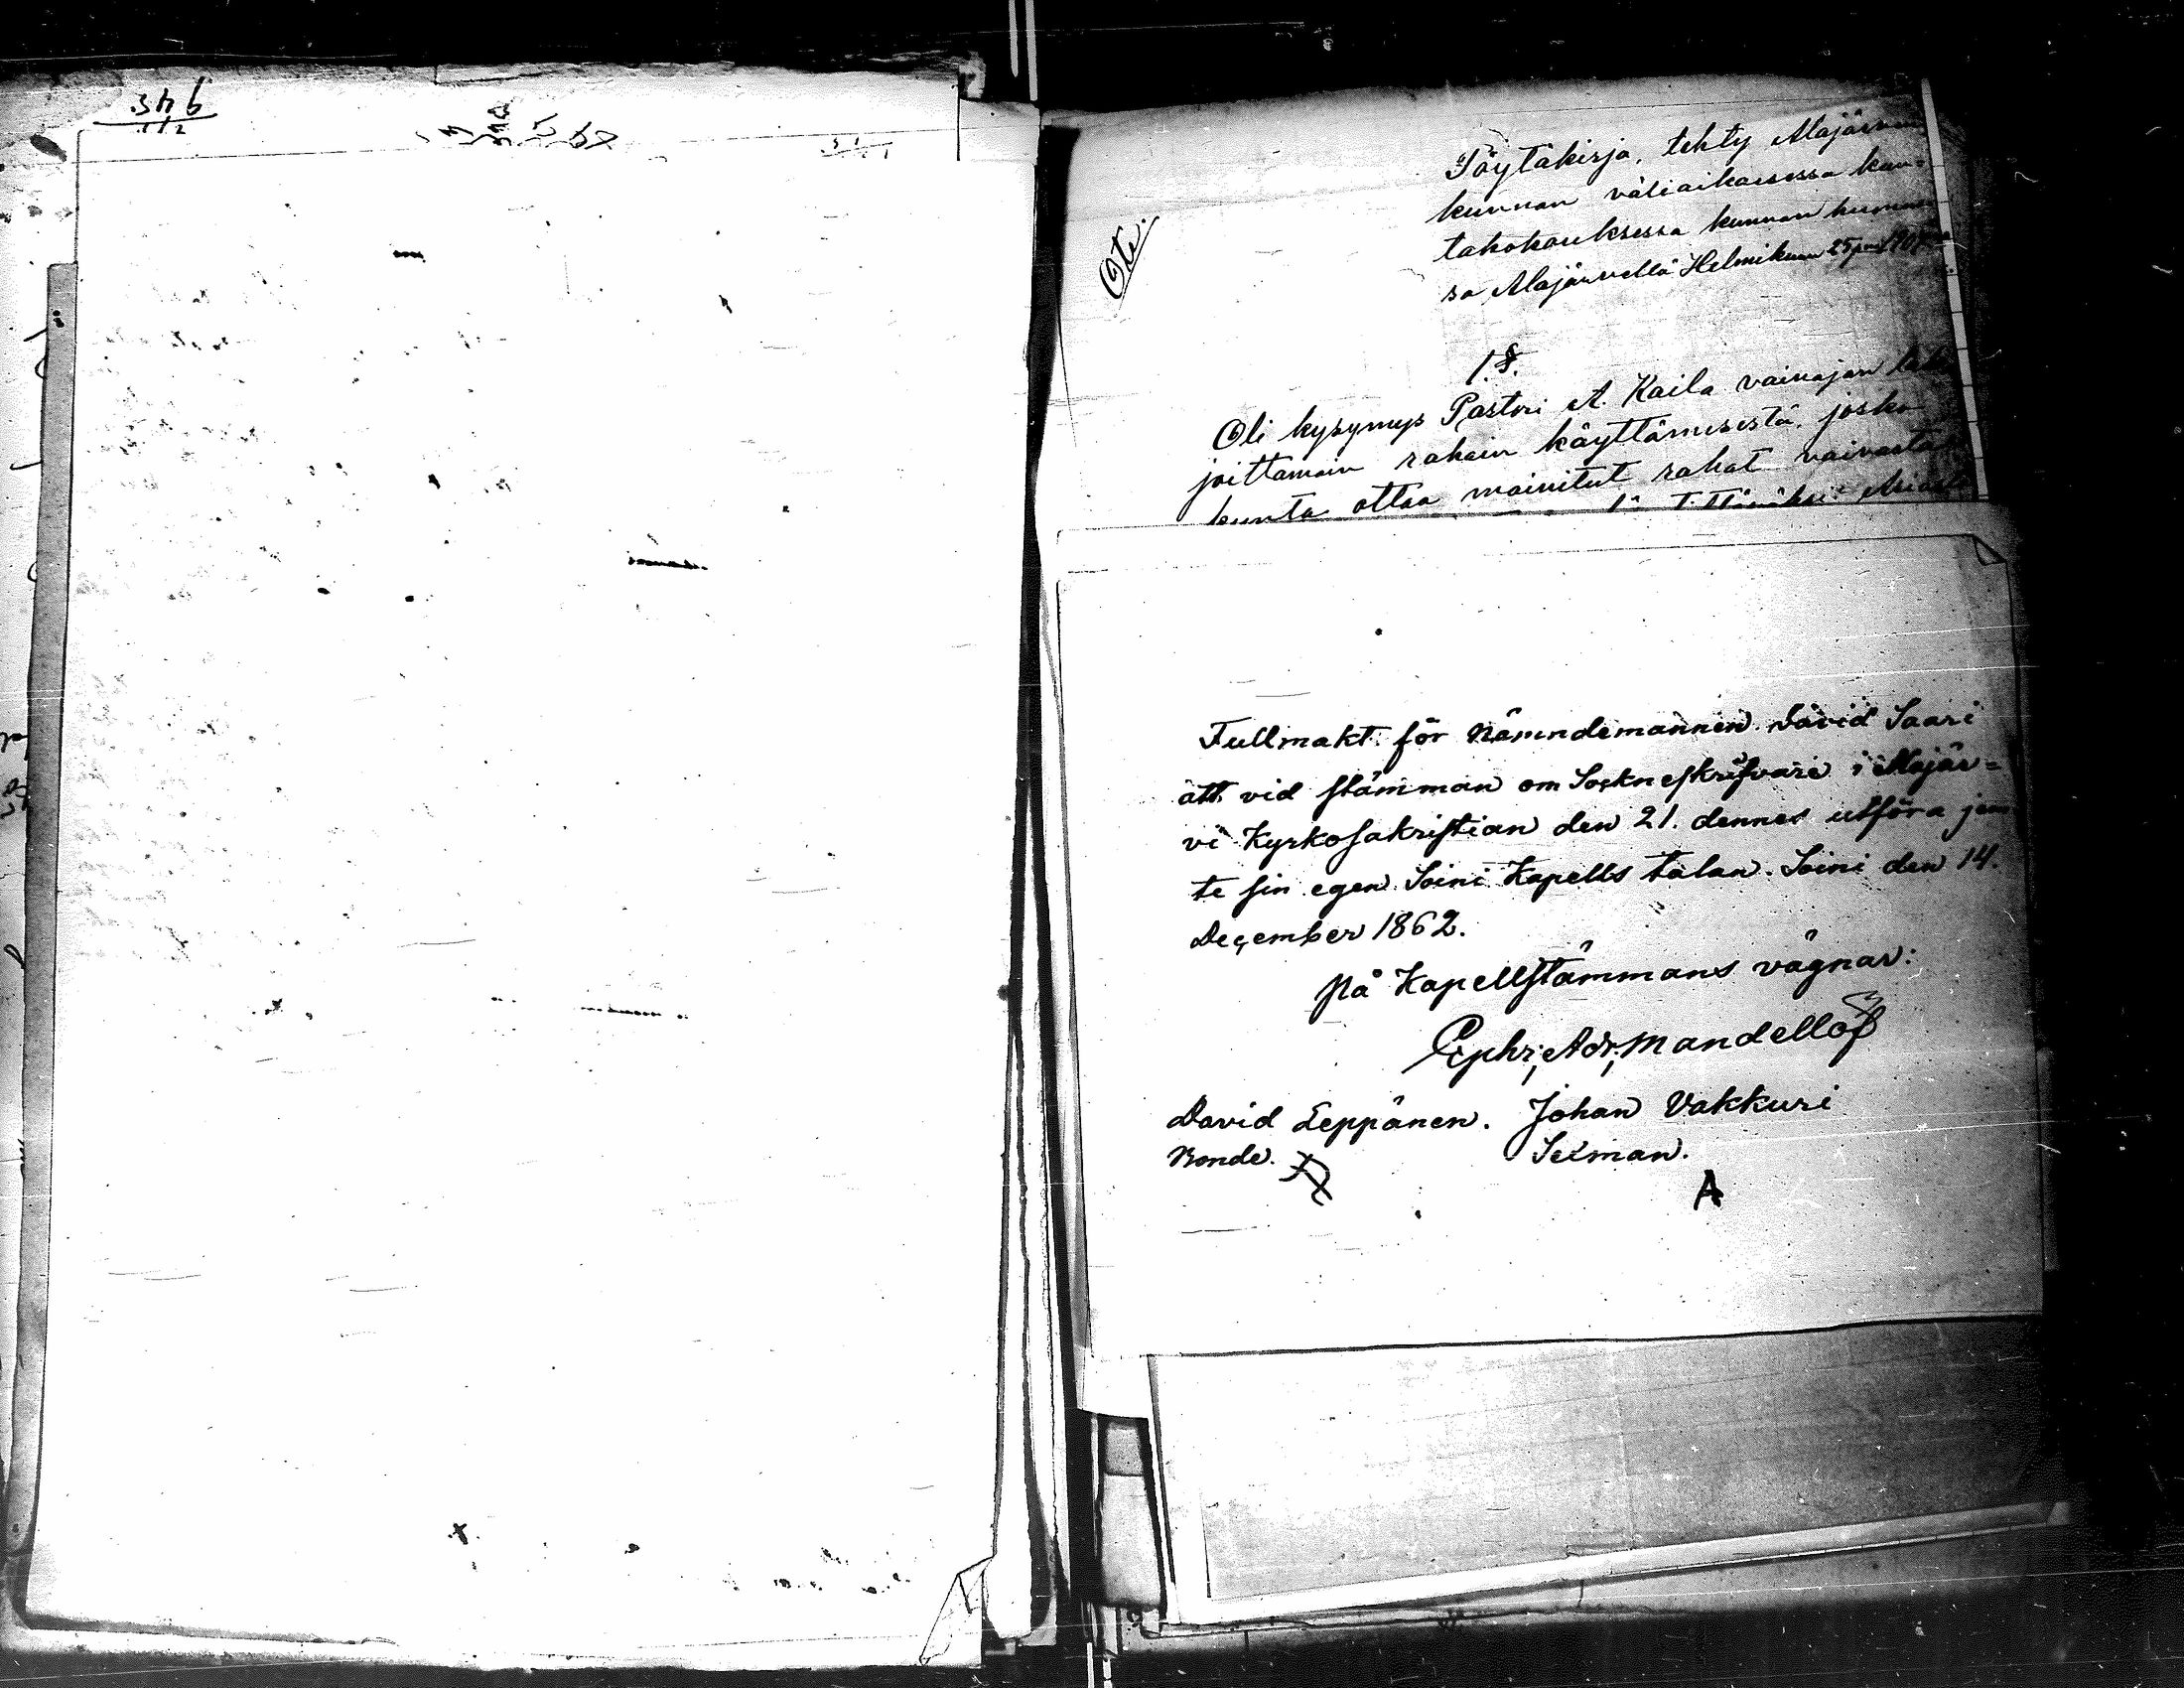 Ote.
Pöytäkirja, tehty Alajärven
kunnan väliaikaisessa kun-
takokouksessa kunnan huonees-
sa Alajärvellä Helmikuun 25 p:nä
1.§.
Oli kysymys Pastori A. Kaila vainajan lah-
joittamain rahain käyttämisestä, josko
kunta ottaa mainitut rahat
Fullmakt för Nämndemannen David Saari
att vid stämman om Sockneskrifvare i Alajär=
vi Kyrkosakristian den 21. dennes utföra jem
te sin egen Soini Kapells talan. Soini den 14.
December 1862.
På Kapellstämmans vägnar:
Ephr; Adr; Mandellöf
David Leppänen. Johan Vakkuri
Bonde. Sexman.
A